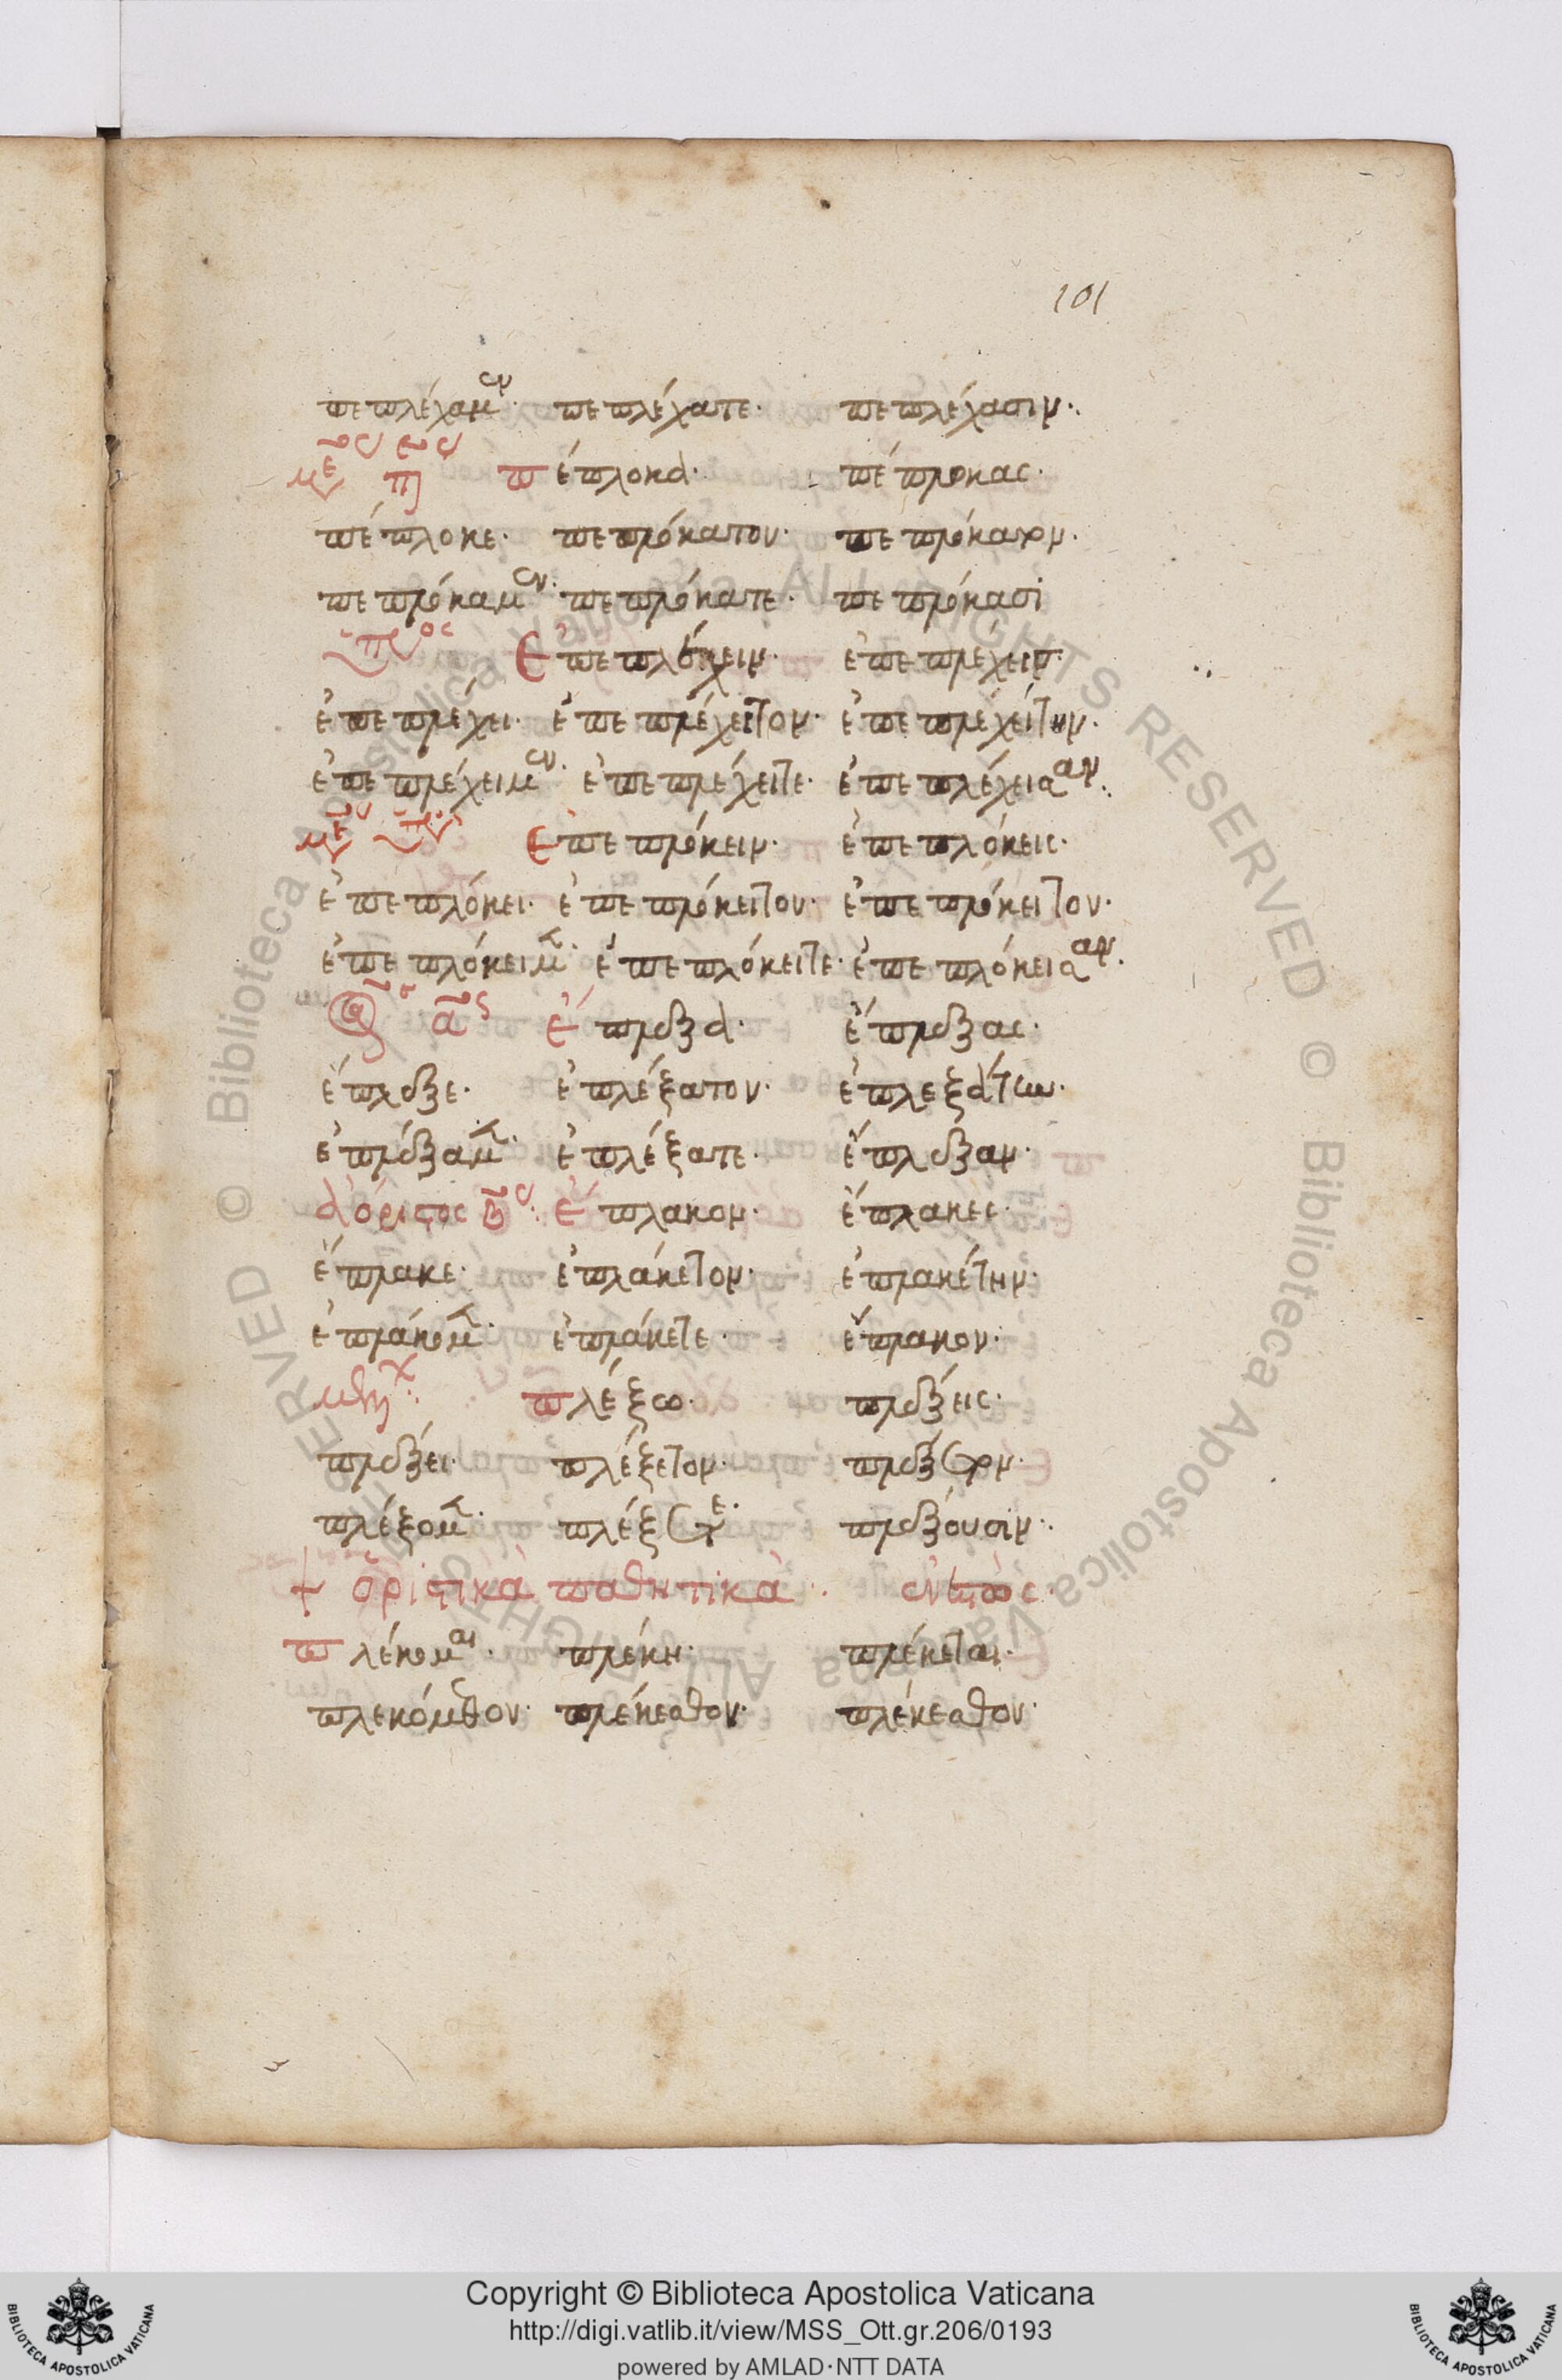 101
πεπλέχαμεν· πεπλέχατε· πεπλέχασιν·
πέπλοκα· πέπλοκας·
πέπλοκε· πεπλόκατον· πεπλόκατον·
πεπλόκαμεν· πεπλόκατε· πεπλόκασι
ἐπεπλέχειν· ἐπεπλέχεις·
ἐπεπλέχει· ἐπεπλέχειτον· ἐπεπλεχείτην·
ἐπεπλέχειμεν· ἐπεπλέχειτε· ἐπεπλέχεισαν·
ἐπεπλόκειν· ἐπεπλόκεις·
ἐπεπλόκει· ἐπεπλόκειτον· ἐπεπλόκειτον·
ἐπεπλόκειμεν· ἐπεπλόκειτε· ἐπεπλόκεισαν·
ἔπλεξα· ἔπλεξας·
ἔπλεξε· ἐπλέξατον· ἐπλεξάτην·
ἐπλέξαμεν· ἐπλέξατε· ἔπλεξαν·
ἀόριστος β̄ος: ἔπλακον· ἔπλακες·
ἔπλακε· ἐπλάκετον· ἐπλακέτην·
ἐπλάκομεν· ἐπλάκετε· ἔπλακον·
πλέξω· πλέξεις·
πλέξει· πλέξετον· πλέξετον·
πλέξομεν· πλέξετε· πλέξουσιν·
+ ὁριστικὰ παθητικά· ἐνεστώς·
πλέκομαι· πλέκη· πλέκεται·
πλεκόμεθον· πλέκεσθον· πλέκεσθον·
Copyright © Biblioteca Apostolica Vaticana
http://digi.vatlib.it/view/MSS_Ott.gr.206/0193
powered by AMLAD·NTT DATA
BIBLIOTECA APOSTOLICA VATICANA
BIBLIOTECA APOSTOLICA VATICANA